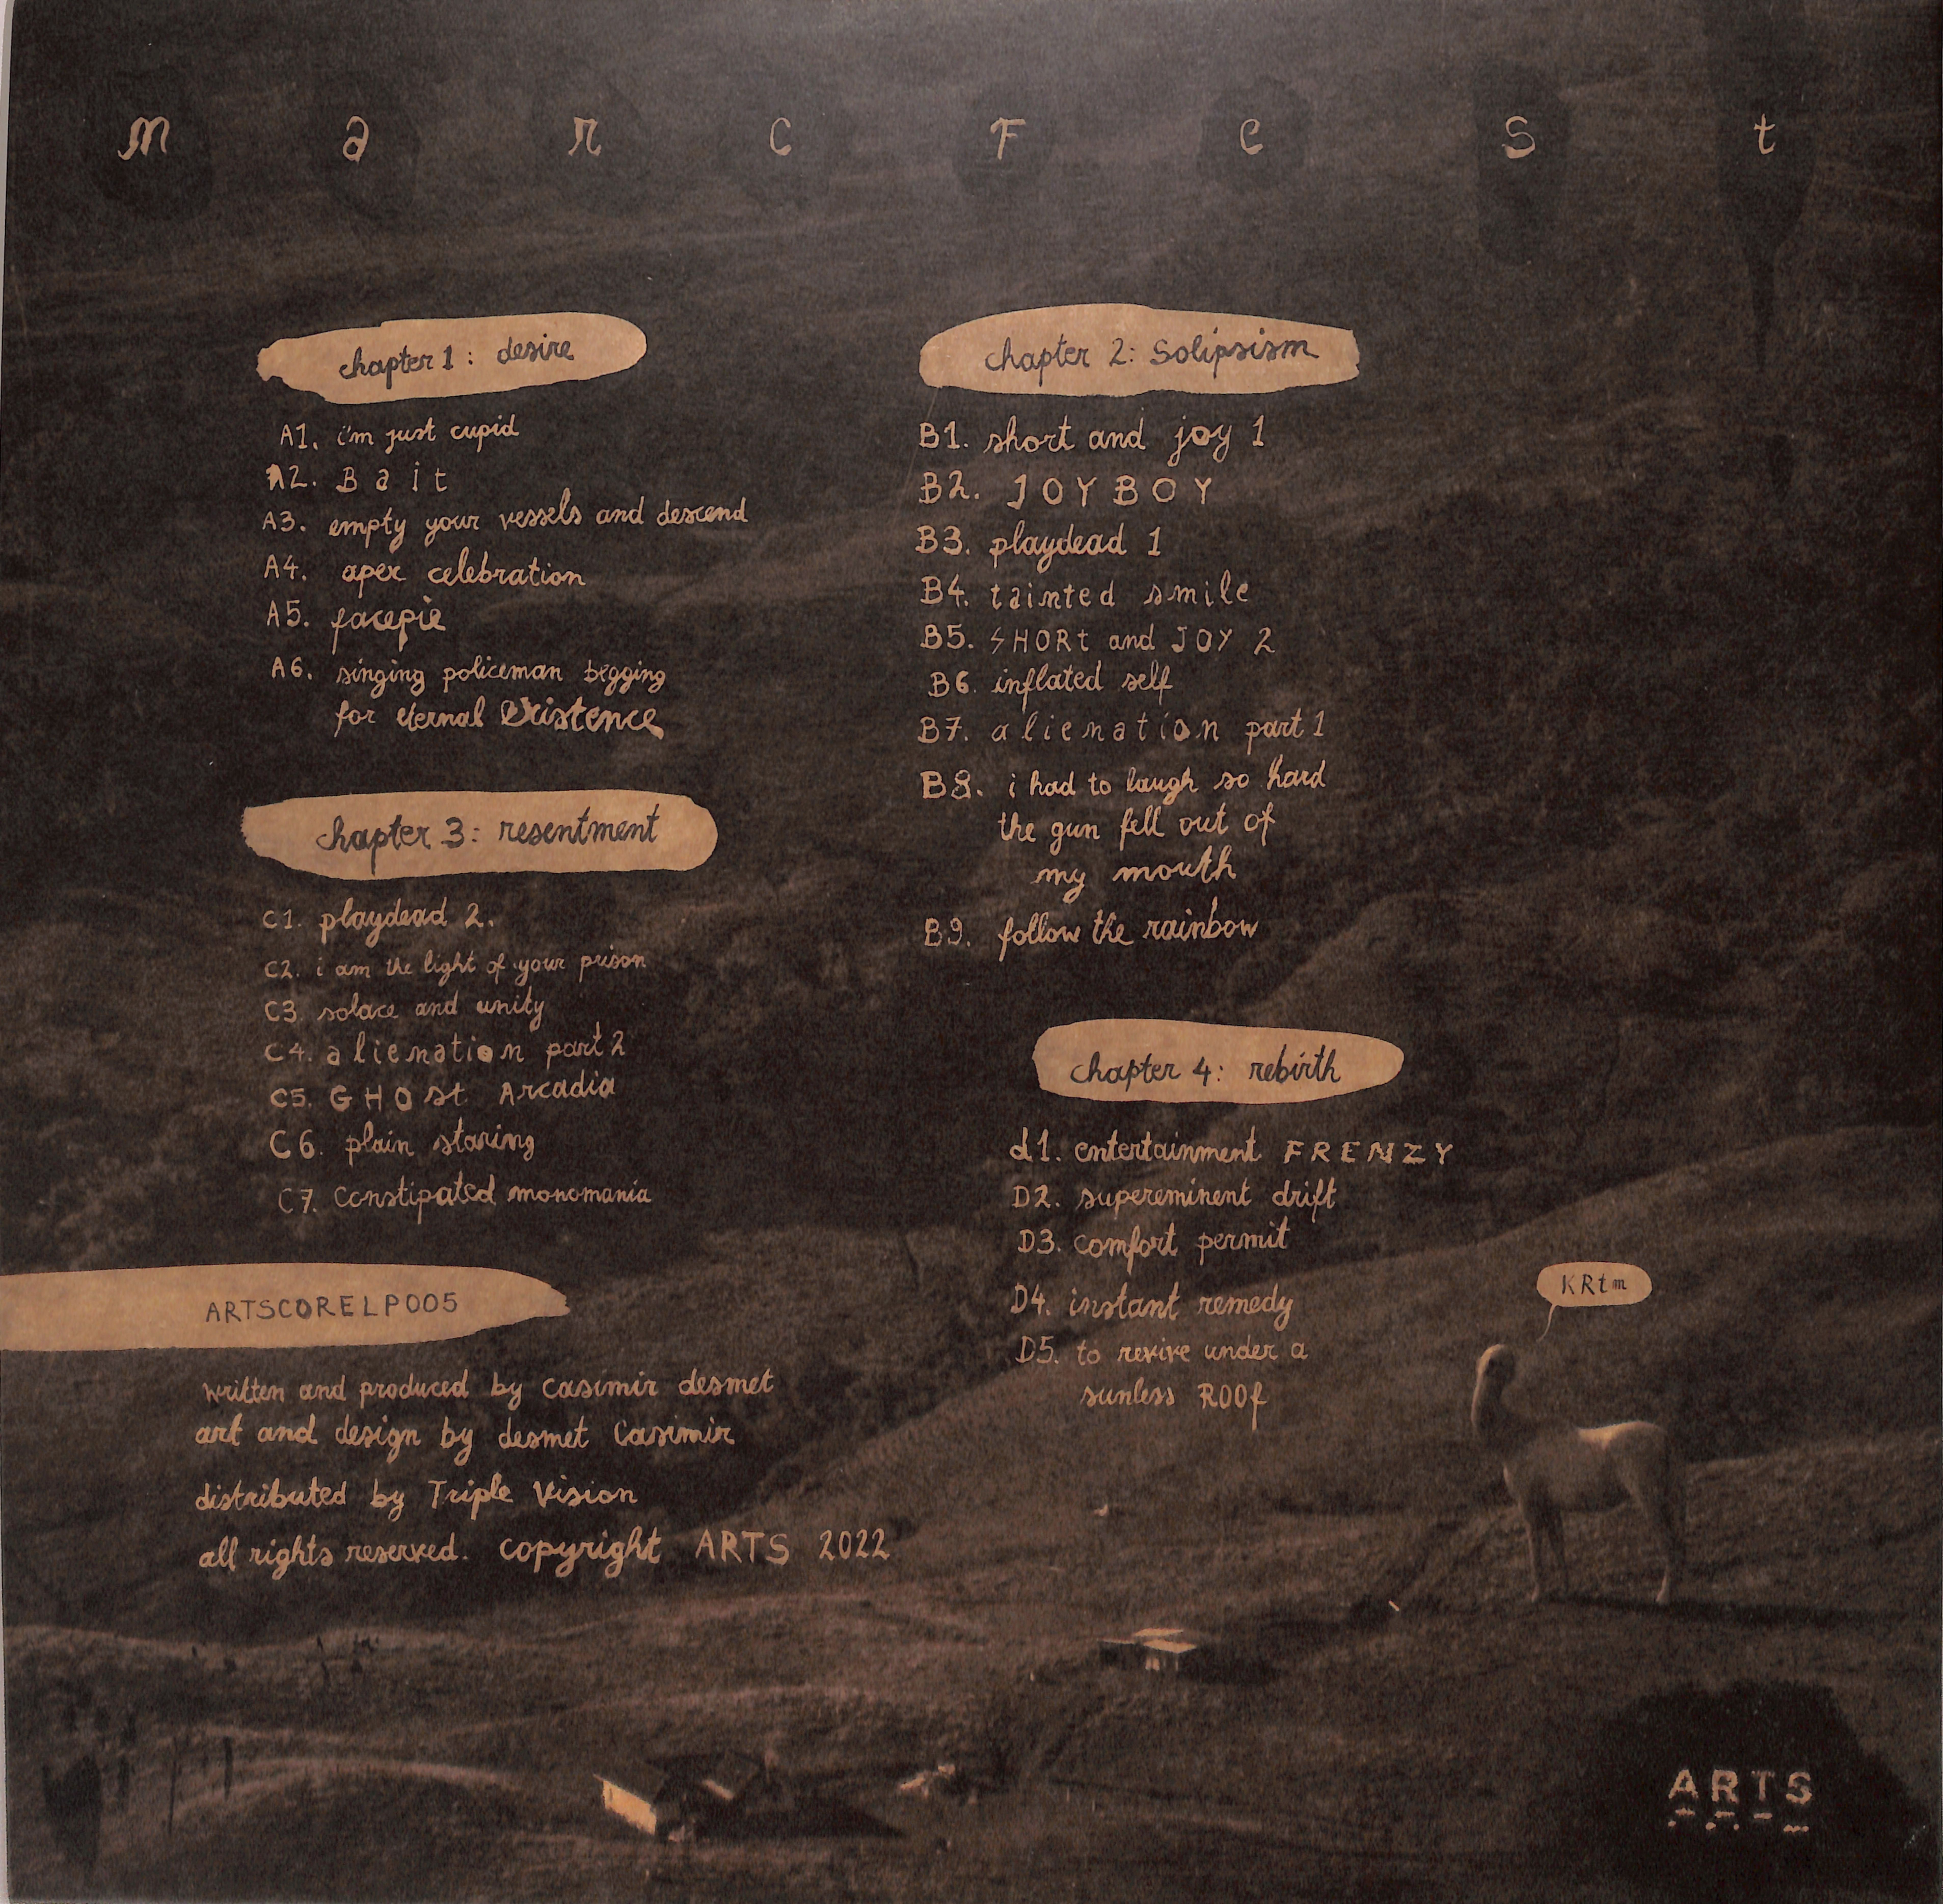 marcFest
chapter 1: desire
A1. i'm just cupid
A2. Bait
A3. empty your vessels and descend
A4. apex celebration
A5. facepie
A6. singing policeman begging
for eternal Existence
chapter 2: Solipsism
B1. short and joy 1
B2. JOYBOY
B3. playdead 1
B4. tainted smile
B5. SHORt and JOY 2
B6. inflated self
B7. alienation part 1
B8. i had to laugh so hard
the gun fell out of
my mouth
B9. follow the rainbow
chapter 3: resentment
C1. playdead 2.
C2. i am the light of your prison
C3. solace and unity
C4. alienation part 2
C5. GHOst Arcadia
C6. plain staring
C7. Constipated monomania
chapter 4: rebirth
d1. entertainment FRENZY
D2. supereminent drift
D3. comfort permit
D4. instant remedy
D5. to revive under a
sunless ROOf
KRtm
ARTSCORELP005
written and produced by casimir desmet
art and design by desmet Casimir
distributed by Triple Vision
all rights reserved. copyright ARTS 2022
ARTS